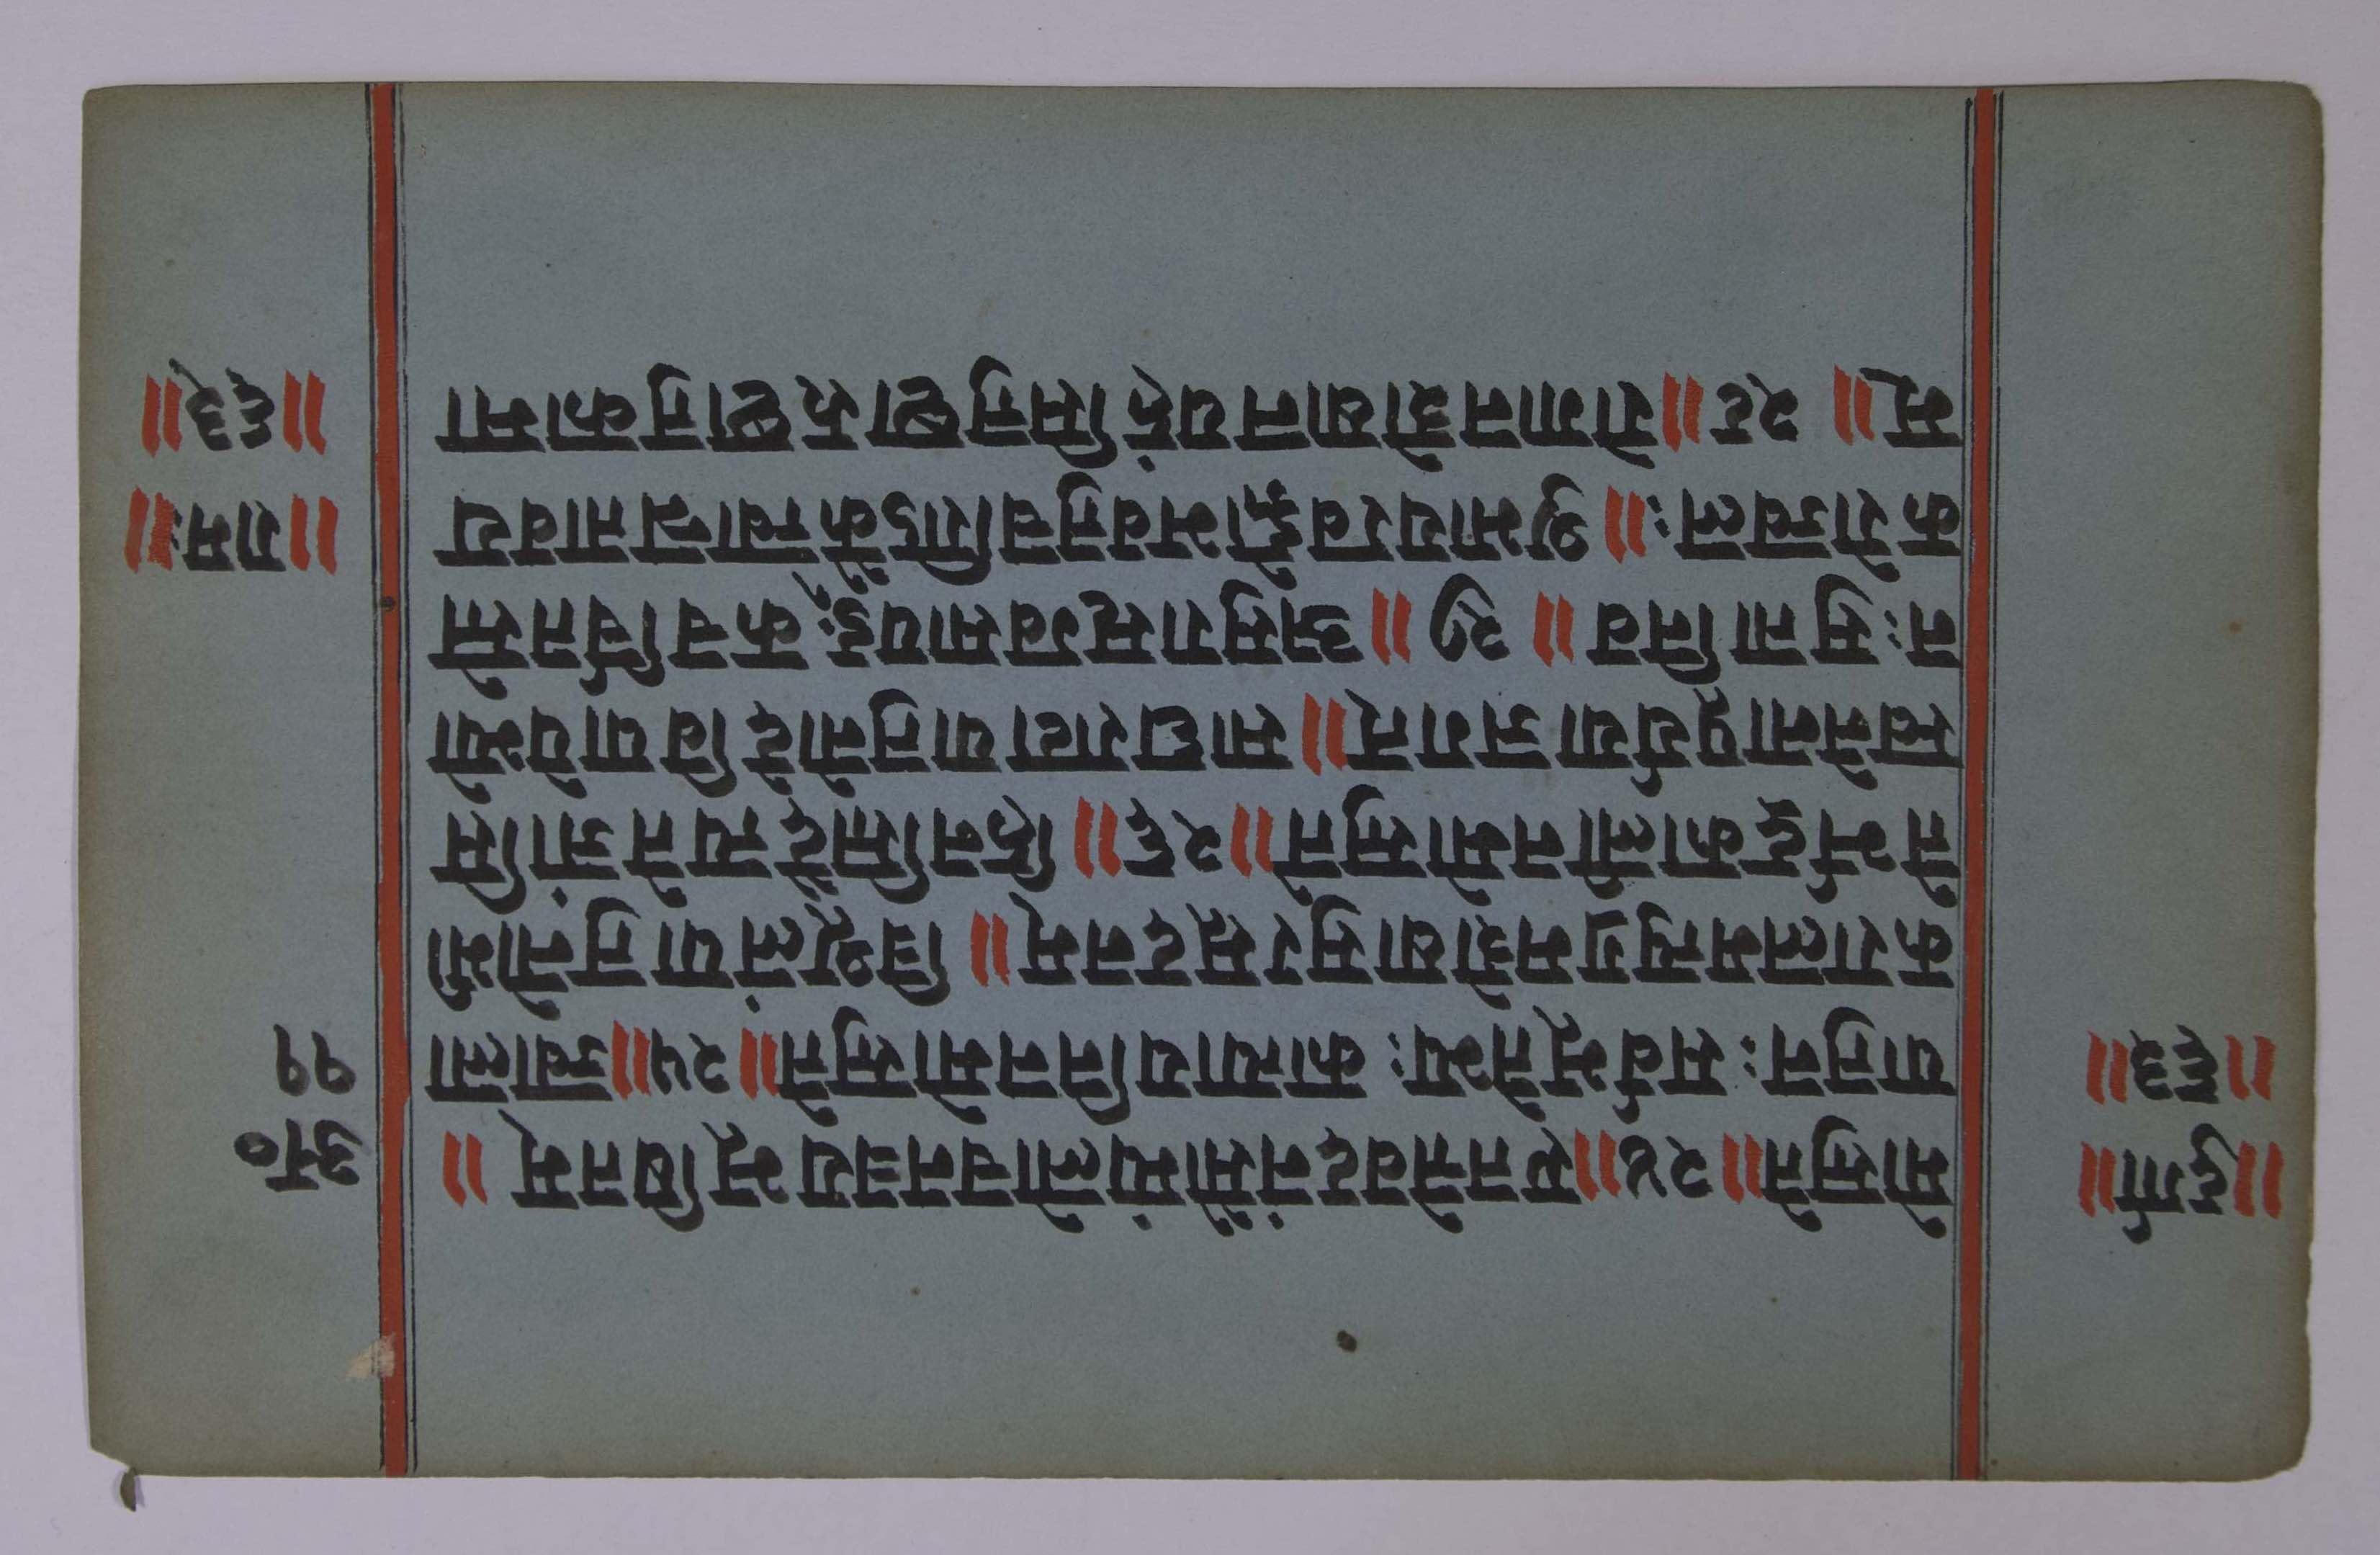 ॥दुर्गा॥
॥६३॥
मोस्तुते॥२४॥एतत्तेवदनंसौम्यंलोचनत्रयभूषितम्॥
पातुनः सर्वभूतेभ्यः कात्यायनिनमोस्तुते॥२५॥ज्वाला
करालमत्युग्रमशेषासुरसूदनम्॥ त्रिशूलंपातुनोभी
तेर्भद्रकालीनमोस्तुते॥२६॥ हिनस्तिदैत्यतेजांसि
स्वनेनापूर्ययाजगत्॥ साघण्टापातुनोदेविपापेभ्यो
नःसुतानिव॥ २७॥ असुरासृग्वसापङ्कचर्चितस्ते
करोज्वलः॥ शुभायखङ्गोभवतुचण्डिकेत्वान्नतावय
म्॥ २८॥रोगानशेषानपहंसितुष्टारुष्टातुकामा
अ०
११
॥रामः॥
॥६३॥